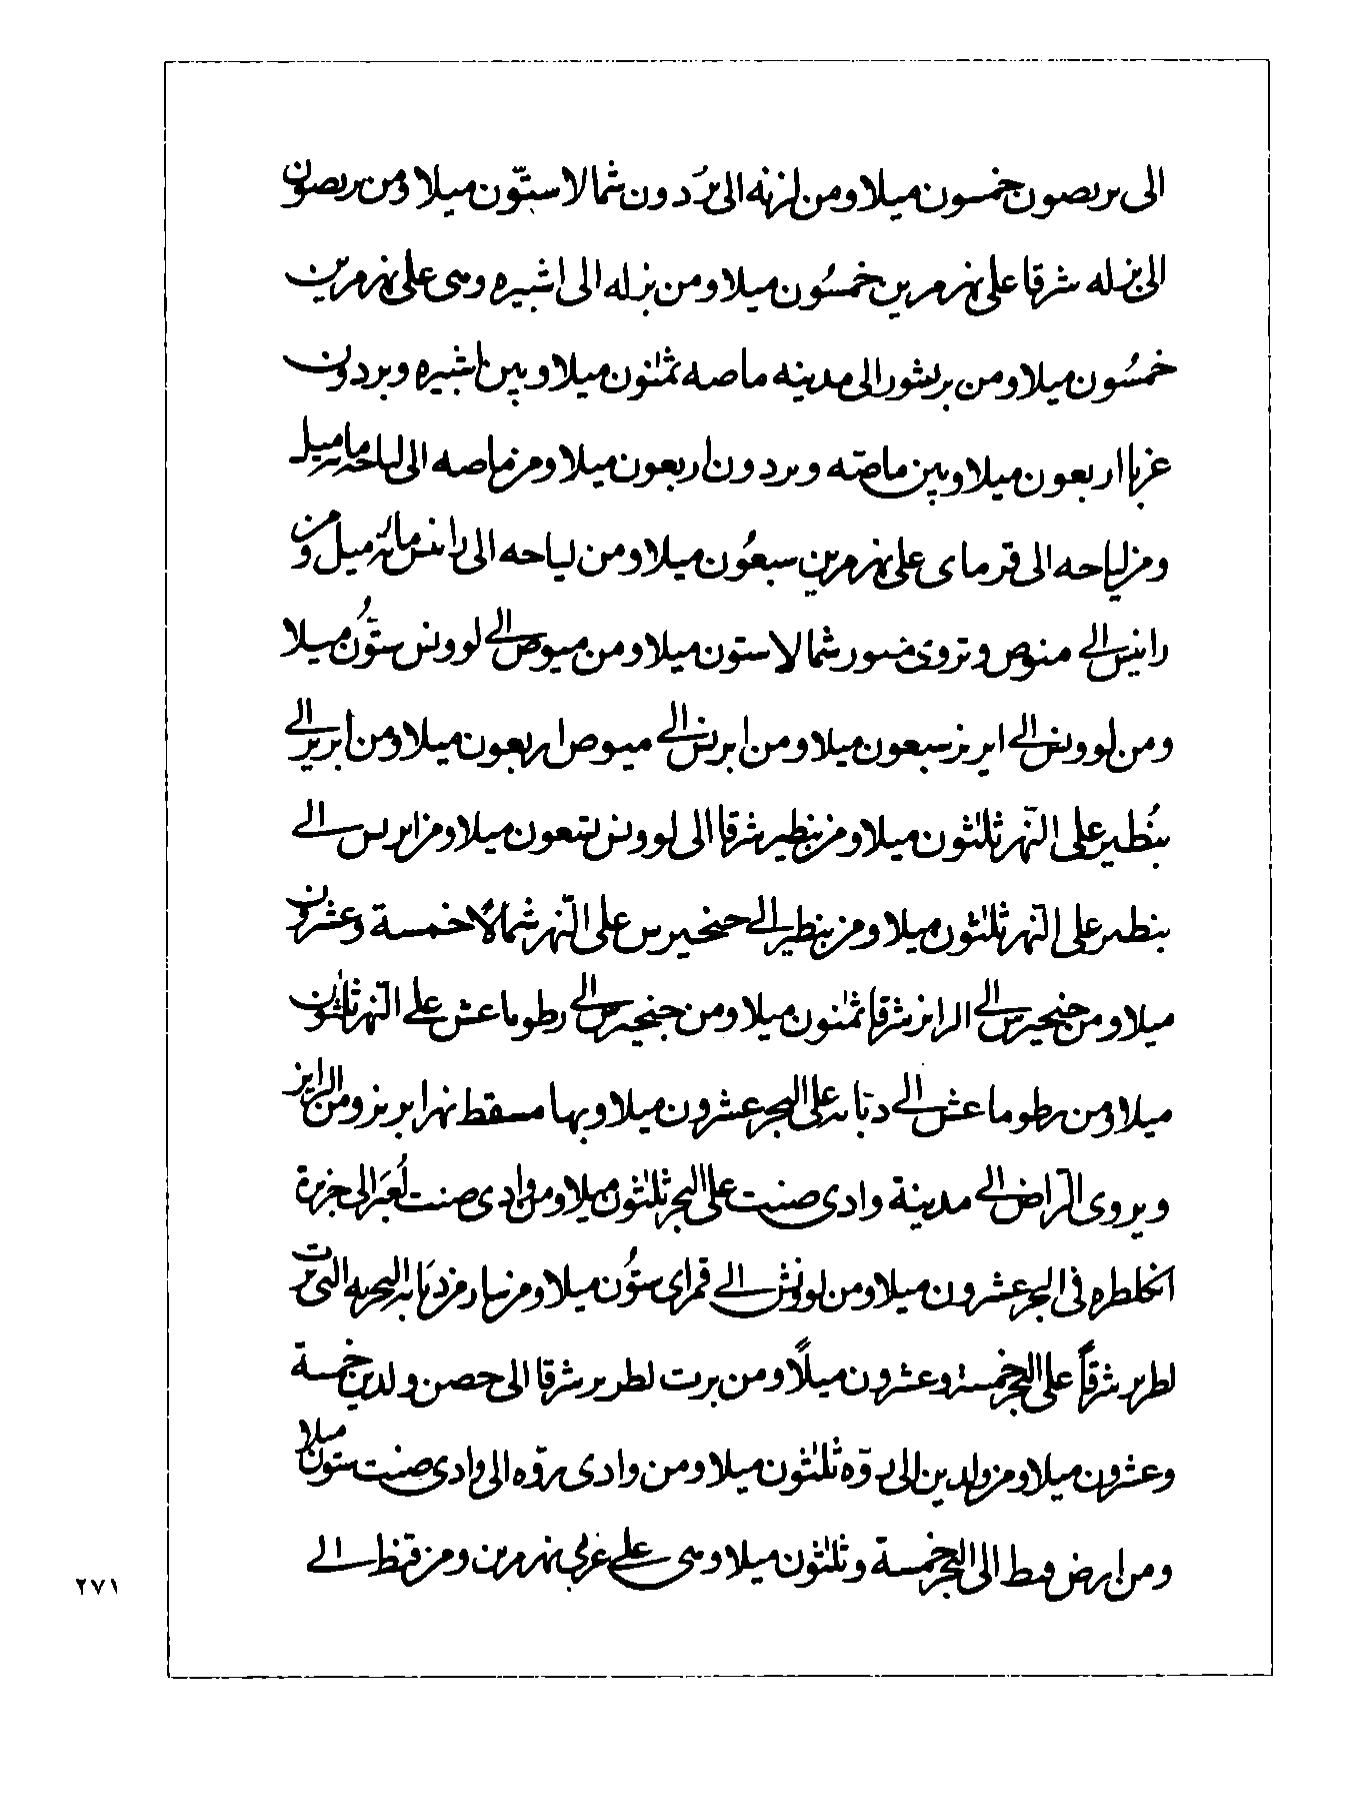 الى بربصون خمسون ميلا ومن لزنه الى بردون شمالا ستّون ميلا ومن بربصون
الى بزله شرقا على نهر مرين خمسُون ميلا ومن بزله الى اشبيره وهى على نهر مرين
خمسُون ميلا ومن بربشور الى مدينه ماصه ثمنون ميلا وبين اشبيره وبردون
غربا اربعون ميلا وبين ماصّه وبردون اربعون ميلا ومن ماصه الى لياحه مايه ميل
ومن لياحه الى قرماى على نهر مرين سبعُون ميلا ومن لياحه الى رانس مائه ميل ومن
رانيس الى منوص وتروى ميلا شمالا ستون ميلا ومن ميوص الى لوونس ستّون ميلا
ومن لوونس الى ابريز سبعون ميلا ومن ابريس الى ميوص اربعون ميلا ومن ابريز الى
بنُطير على النّهر ثلثون ميلا ومن بنطير شرقا الى لوونس تسعون ميلا ومن ابريس الى
بنطير على النّهر ثلثون ميلا ومن بنطير الى جنجيرس على النّهر شمالًا خمسة وعشرون
ميلا ومن جنجيرس الى الرانز شرقا ثمنون ميلا ومن جنجيرس الى رطوماغش على النّهر ثلثون
ميلا ومن رطوماغش الى دبّابه على البحر عشرون ميلا وبها مسقط نهر ابريز ومن الرانز
ويروى الرّاض الى مدينة وادى صنت على البحر ثلثون ميلا ومن وادى صنت لعُبَر الى جزيرة
انكلطره فى البحر عشرون ميلا ومن لوونش الى قمراى ستُّون ميلا ومن سار من دبَّابه البحريه الى برت
لطرير شرقاً على البحر خمسة وعشرون ميلًا ومن برت لطرير شرقا الى حصن ولدين خمسة
وعشرون ميلا ومن ولدين الى روّه ثلثون ميلا ومن وادى روّه الى وادى صنت ستون ميلا
ومن ارض قنط الى البحر خمسة وثلثون ميلا وهى على غربى نهر مرين ومن قنط الى
٢٧١